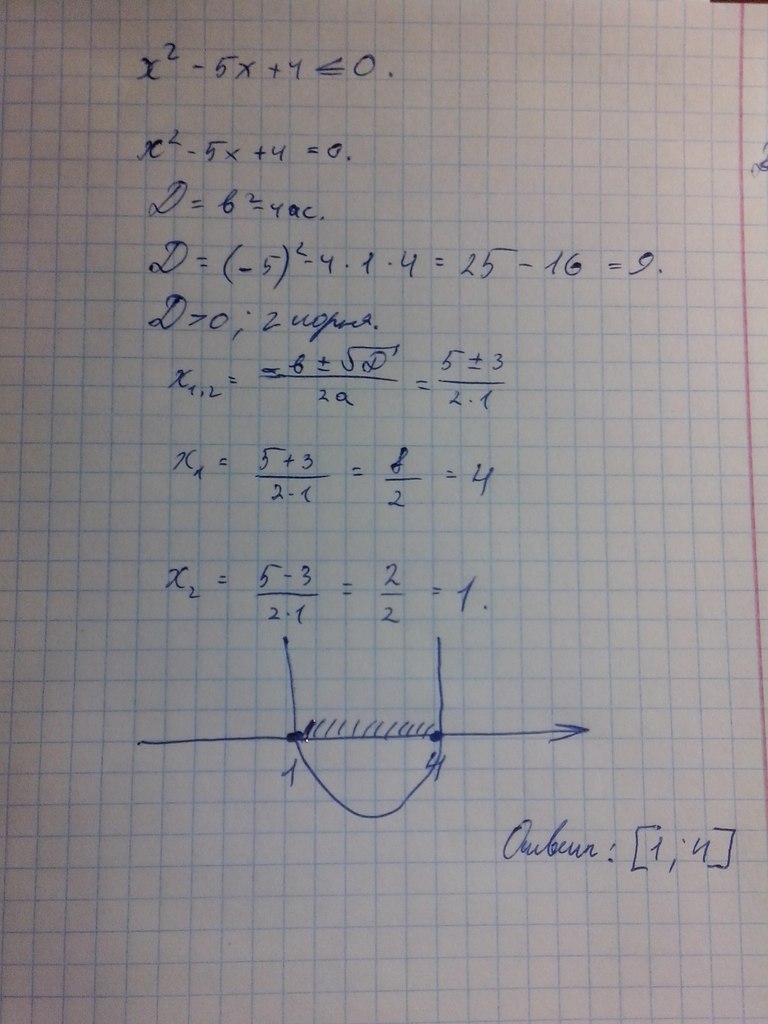 x² - 5x + 4 ≤ 0.
x² - 5x + 4 = 0.
D = b² - 4ac.
D = (-5)² - 4 · 1 · 4 = 25 - 16 = 9.
D > 0; 2 корня.
x₁,₂ = (-b ± √D)/2a = (5 ± 3)/(2·1)
x₁ = (5+3)/(2·1) = 8/2 = 4
x₂ = (5-3)/(2·1) = 2/2 = 1.
1 4
Ответ: [1; 4]